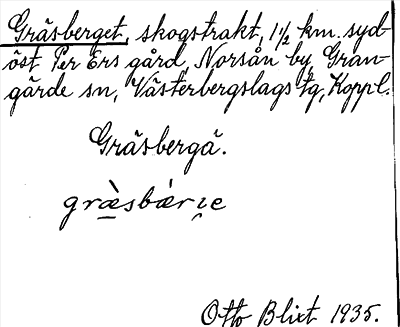 Gräsberget, skogstrakt, 1 1/2 km. syd-
öst Per Ers gård, Norsån by, Gran-
gärde sn, Västerbergslags tg, Koppl.
Gräsbergä.
græ̀sbær
Otto Blixt 1935.